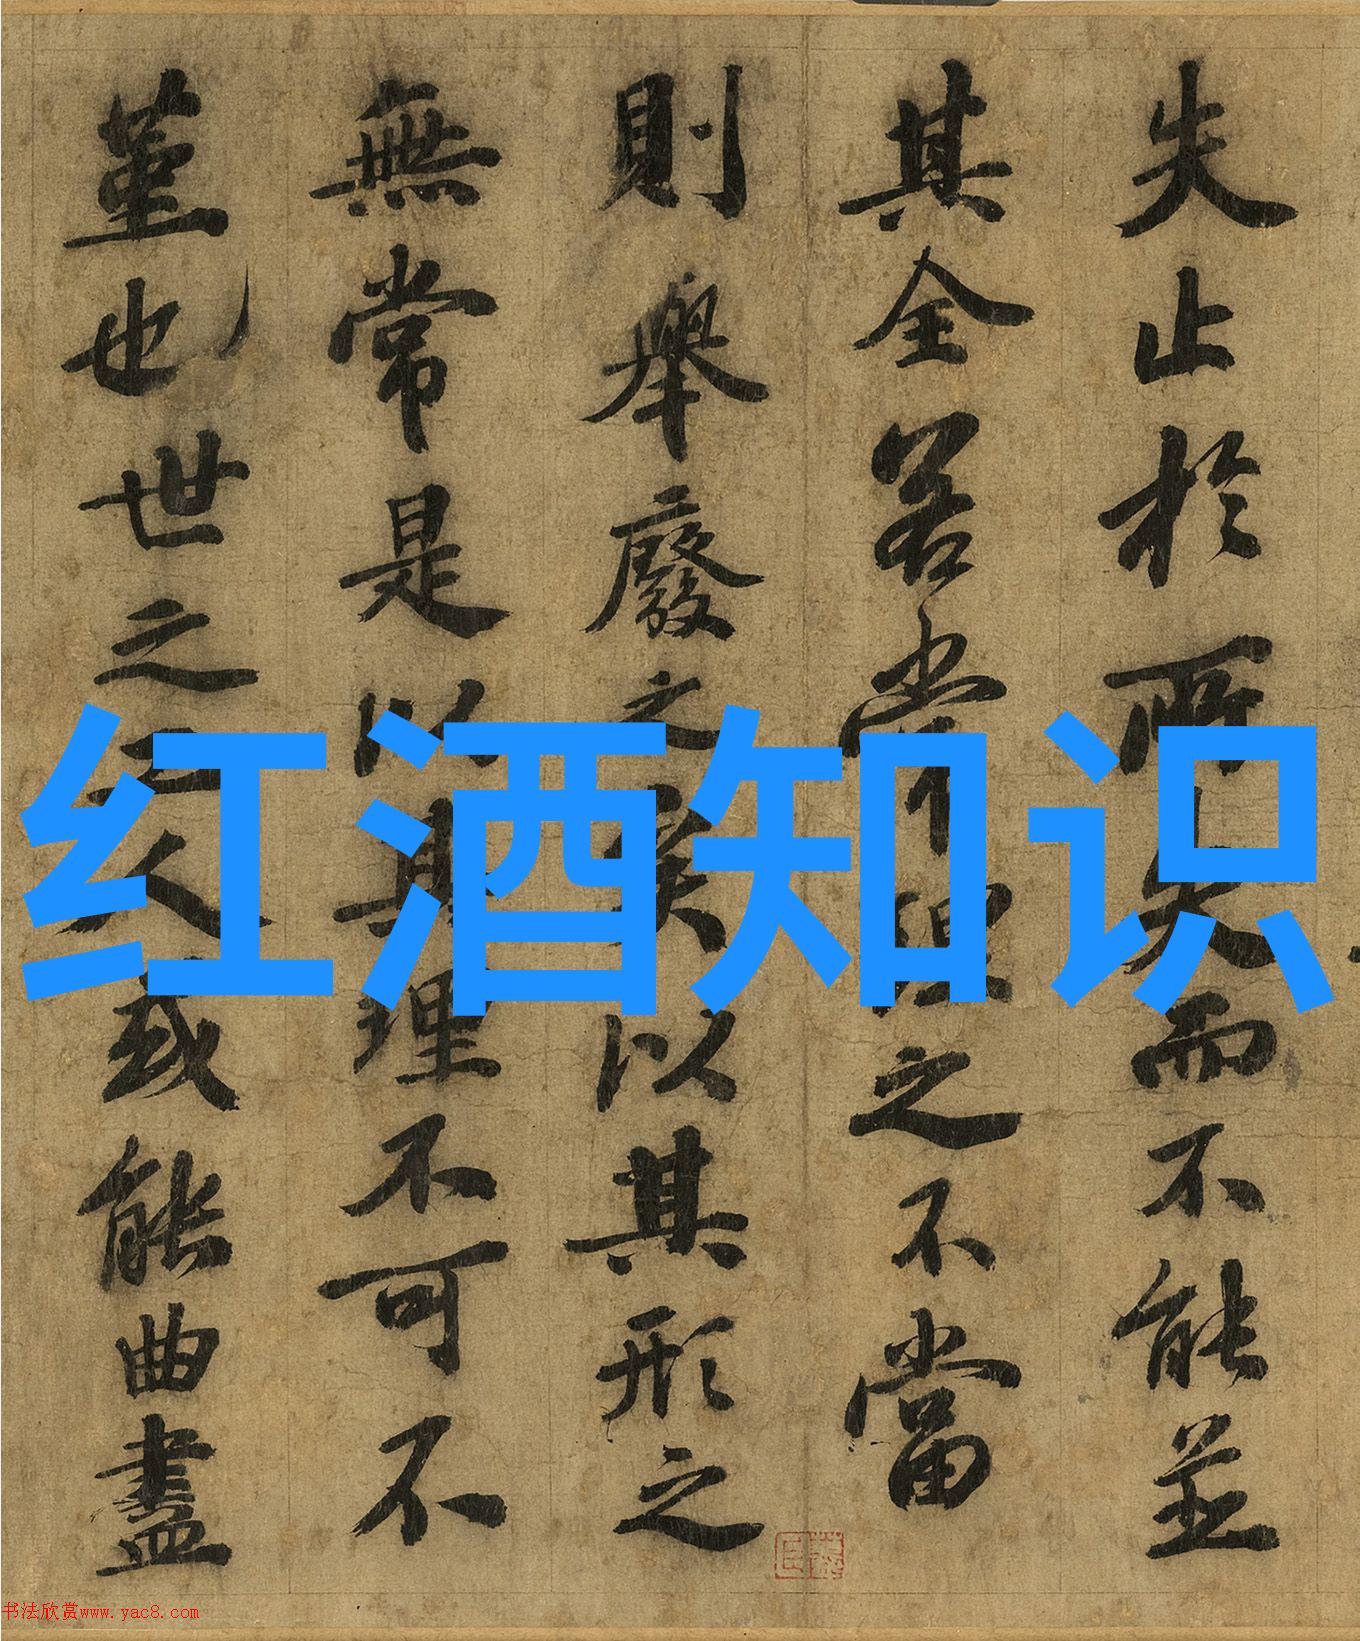 失止於所失而不能並
其全若常理之不當
則舉廢之矣以其形之
無常是以其理不可不
堇也世之工人或能曲盡
红酒知识
书法欣赏www.yac8.com